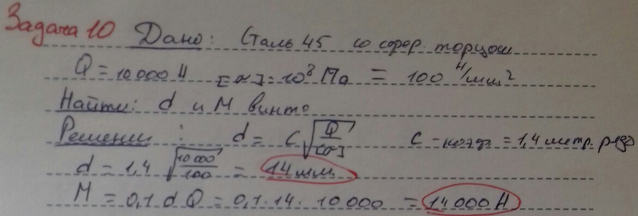 Задача 10 Дано: Сталь 45 со сфер. торцом
Q = 10000 Н [σ] = 10⁸ Па = 100 Н/мм²
Найти: d и М винта
Решение: d = C√(Q/[σ]) C - коэф = 1,4 метр. резьба
d = 1,4 √(10 000/100) = 14 мм
М = 0,1 d Q = 0,1 · 14 · 10 000 = 14 000 Н